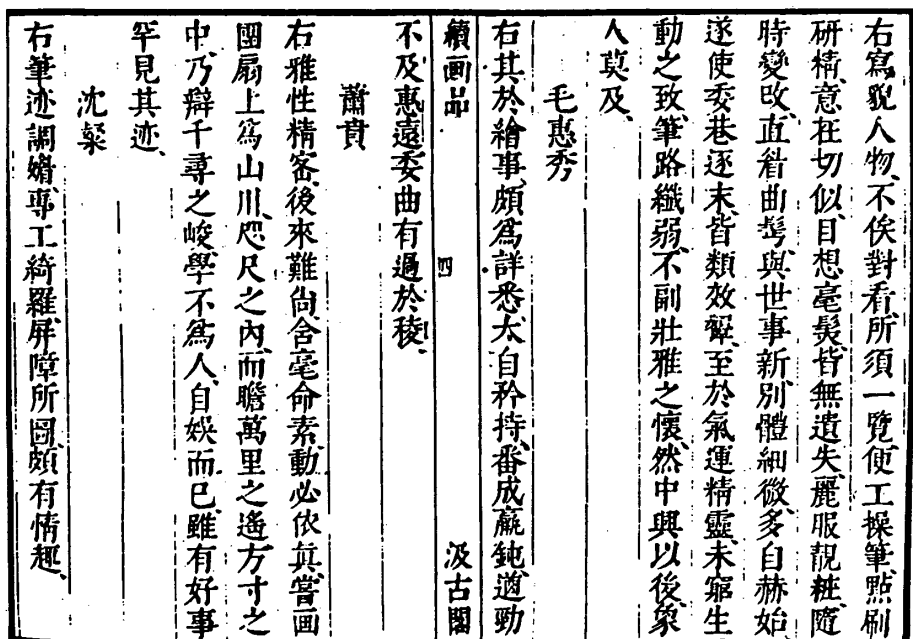 右寫貌人物、不俟對看、所須一覽、便工操筆、點刷
研精、意在切似、目想毫髮、皆無遺失、麗服靚粧、隨
時變改、直眉曲鬓、與世事新、別體細微、多自赫始、
遂使委巷逐末、皆類效顰、至於氣運精靈、未窮生
動之致、筆路纖弱、不副壯雅之懷、然中興以後、象
人莫及、
毛惠秀
右其於繪事、頗爲詳悉、太自矜持、番成羸鈍、遒勁
續画品 四 汲古閣
不及惠遠、委曲有過於稜、
蕭賁
右雅性精密、後來難尙、含毫命素、動必依眞、嘗画
團扇上爲山川、咫尺之內、而瞻萬里之遙、方寸之
中、乃辯千尋之峻、學不爲人、自娛而已、雖有好事、
罕見其迹、
沈粲
右筆迹調媚、專工綺羅、屏障所圖、頗有情趣、